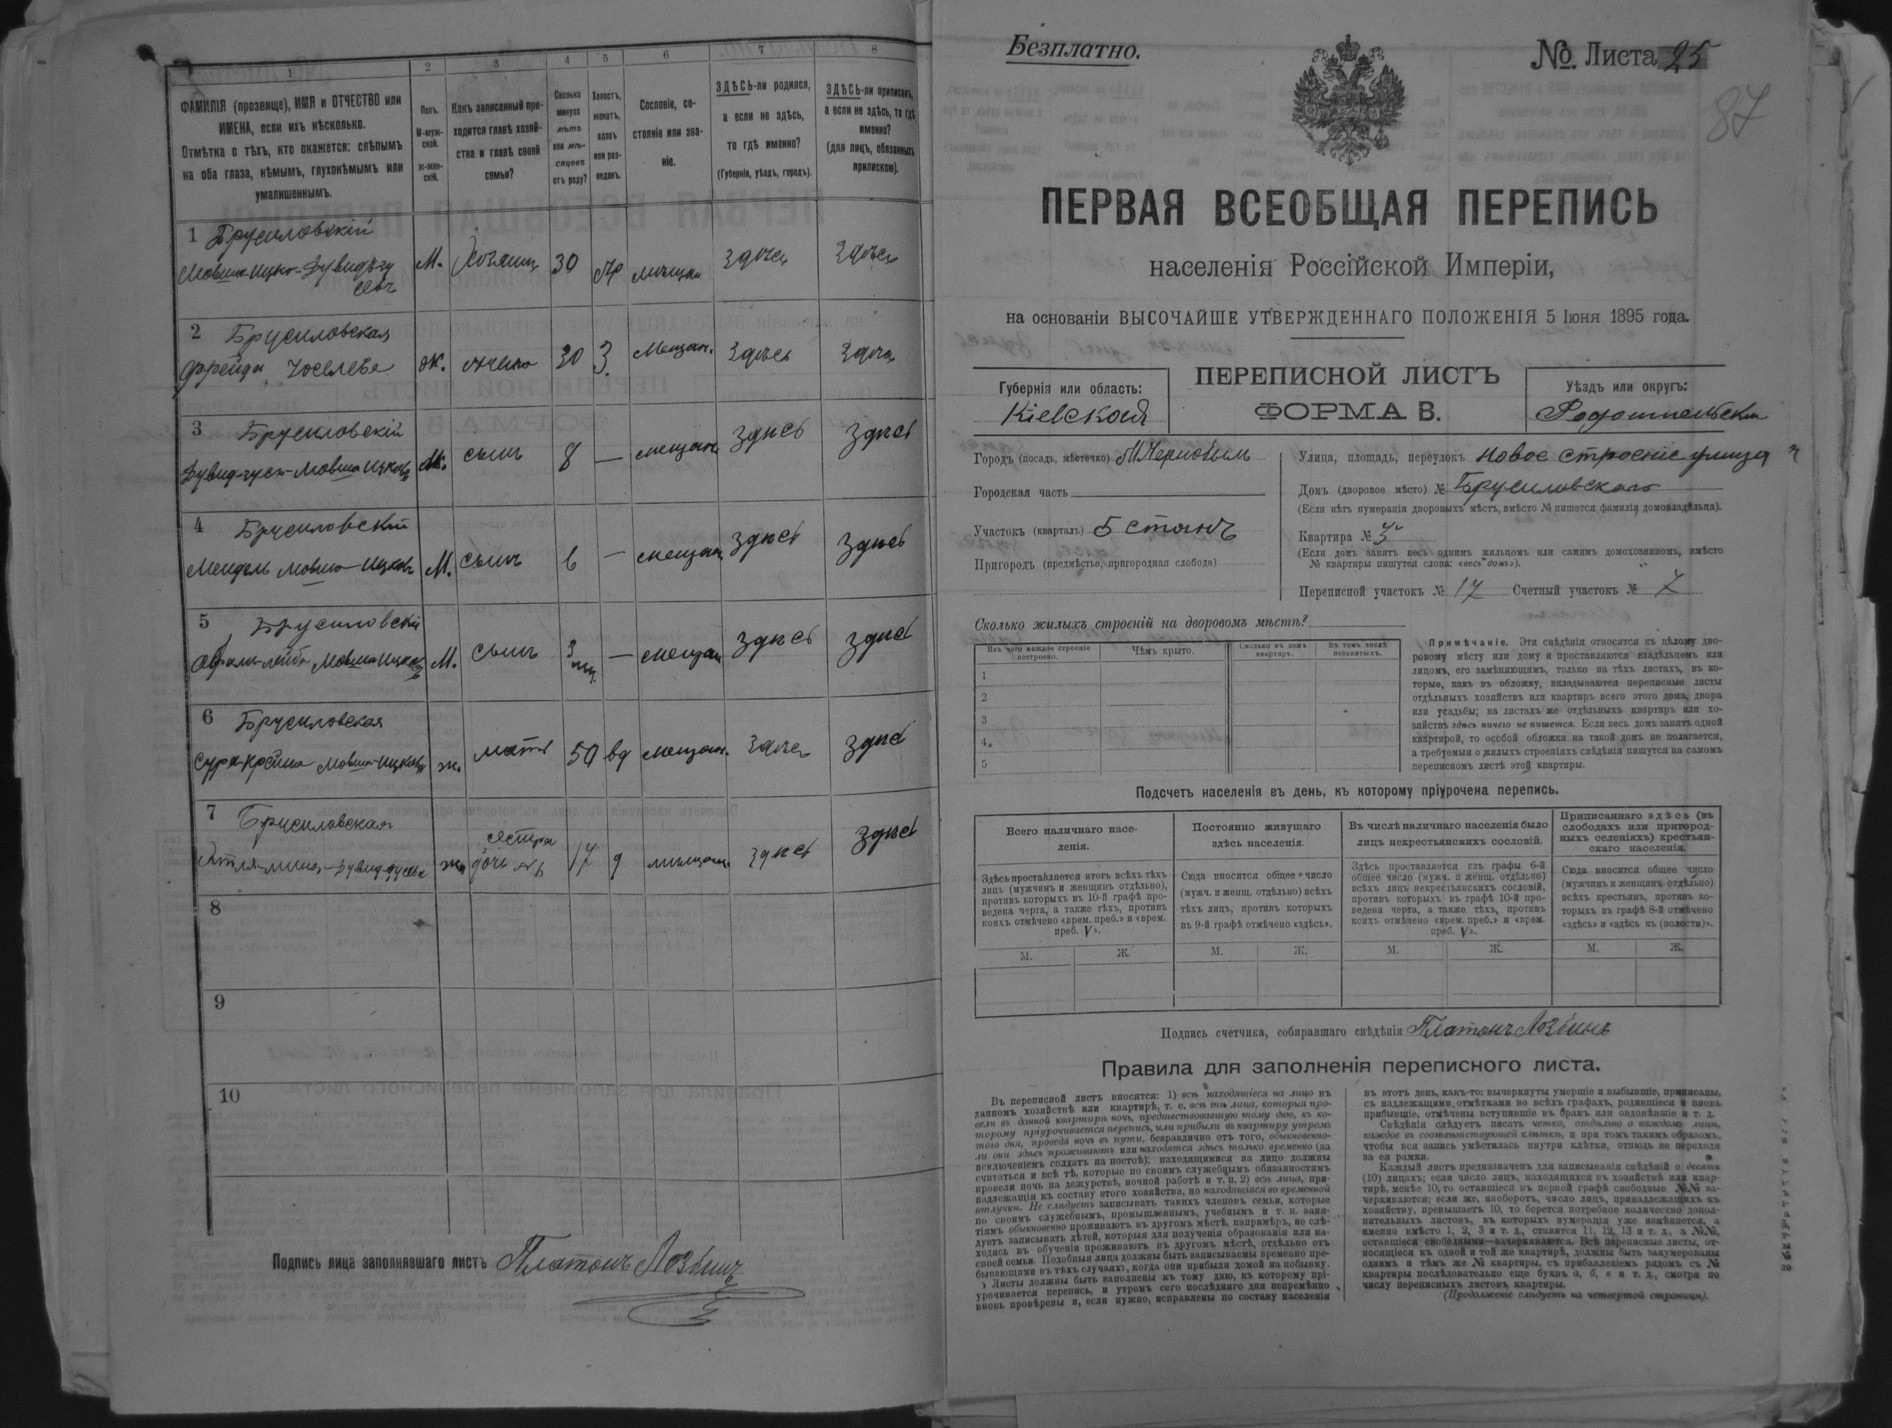 1
2
3
4
5
6
7
8
ФАМИЛІЯ (прозвище), ИМЯ и ОТЧЕСТВО или
ИМЕНА, если ихъ нѣсколько.
Отмѣтка о тѣхъ, кто окажется: слѣпымъ
на оба глаза, нѣмымъ, глухонѣмымъ или
умалишеннымъ.
Полъ.
М-муж-
ской.
ж-жен-
скій.
Какъ записанный при-
ходится главѣ хозяй-
ства и главѣ своей
семьи?
Сколько
минуло
лѣтъ
или мѣ-
сяцевъ
отъ роду?
Холостъ,
женатъ,
вдовъ
или раз-
веденъ.
Сословіе, со-
стояніе или зва-
ніе.
ЗДѢСЬ-ли родился,
а если не здѣсь,
то гдѣ именно?
(Губернія, уѣздъ, городъ).
ЗДѢСЬ-ли приписанъ,
а если не здѣсь, то гдѣ
именно?
(для лицъ, обязанныхъ
припискою).
1 Брусиловскій
Мовша-Ицко-Дувидъ-гу
М. 30 здѣсь здѣсь
2 Брусиловская
Фрейда
ж. 30 З. мещан. здѣсь здѣсь
3 Брусиловскій
Дувид-гусъ-Мовша Ицков
М. сынъ 8 — мещан. здѣсь здѣсь
4 Брусиловскій
Мендель Мовша-Ицковъ
М. сынъ 6 — мещан. здѣсь здѣсь
5 Брусиловскій
Мовша Ицков
М. сынъ 3 — мещан здѣсь здѣсь
6 Брусиловская
Сура-Крейна Мовша-Ицков
ж. мать 50 вд мещан. здѣсь здѣсь
7 Брусиловская
Дувид-Гусев
ж. сестра
дочь 17 д мещан. здѣсь здѣсь
8
9
10
Подпись лица заполнявшаго листъ Платонъ Лозбинъ
Безплатно.
№ Листа 25
87
ПЕРВАЯ ВСЕОБЩАЯ ПЕРЕПИСЬ
населенія Россійской Имперіи,
на основаніи ВЫСОЧАЙШЕ УТВЕРЖДЕННАГО ПОЛОЖЕНІЯ 5 Іюня 1895 года.
Губернія или область:
Кіевская
ПЕРЕПИСНОЙ ЛИСТЪ
ФОРМА В.
Уѣздъ или округъ:
Радомысльскій
Городъ (посадъ, мѣстечко) М Чернобыль
Городская часть
Участокъ (кварталъ) 5 станъ
Пригородъ (предмѣстье, пригородная слобода)
Улица, площадь, переулокъ Новое строеніе улица
Домъ (дворовое мѣсто) № Брусиловскаго
(Если нѣтъ нумераціи дворовыхъ мѣстъ, вмѣсто № пишется фамилія домовладѣльца).
Квартира № 3
(Если домъ занятъ весь однимъ жильцомъ или самимъ домохозяиномъ, вмѣсто
№ квартиры пишутся слова: «весь домъ»).
Переписной участокъ № 17 Счетный участокъ № 7
Сколько жилыхъ строеній на дворовомъ мѣстѣ?
Изъ чего каждое строеніе
построено.
Чѣмъ крыто.
Сколько въ немъ
квартиръ.
Въ томъ числѣ
незанятыхъ.
1
2
3
4
5
Примѣчаніе. Эти свѣдѣнія относятся къ цѣлому дво-
ровому мѣсту или дому и проставляются владѣльцемъ или
лицомъ, его замѣняющимъ, только на тѣхъ листахъ, въ ко-
торые, какъ въ обложку, вкладываются переписные листы
отдѣльныхъ хозяйствъ или квартиръ всего этого дома, двора
или усадьбы; на листахъ же отдѣльныхъ квартиръ или хо-
зяйствъ здѣсь ничего не пишется. Если весь домъ занятъ одной
квартирой, то особой обложки на такой домъ не полагается,
а требуемыя о жилыхъ строеніяхъ свѣдѣнія пишутся на самомъ
переписномъ листѣ этой квартиры.
Подсчетъ населенія въ день, къ которому пріурочена перепись.
Всего наличнаго насе-
ленія.
Здѣсь проставляется итогъ всѣхъ тѣхъ
лицъ (мужчинъ и женщинъ отдѣльно),
противъ которыхъ въ 10-й графѣ про-
ведена черта, а также тѣхъ, противъ
коихъ отмѣчено «врем. преб.» и «врем.
преб. V».
Постоянно живущаго
здѣсь населенія.
Сюда вносится общее число
(мужч. и женщ. отдѣльно) всѣхъ
тѣхъ лицъ, противъ которыхъ
въ 9-й графѣ отмѣчено «здѣсь».
Въ числѣ наличнаго населенія было
лицъ некрестьянскихъ сословій.
Здѣсь проставляется изъ графы 6-й
общее число (мужч. и женщ. отдѣльно)
всѣхъ лицъ некрестьянскихъ сословій,
противъ которыхъ въ графѣ 10-й про-
ведена черта, а также тѣхъ, противъ
коихъ отмѣчено «врем. преб.» и «врем.
преб. V».
Приписаннаго здѣсь (въ
слободахъ или пригород-
ныхъ селеніяхъ) крестьян-
скаго населенія.
Сюда вносится общее число
(мужчинъ и женщинъ отдѣльно)
всѣхъ крестьянъ, противъ ко-
торыхъ въ графѣ 8-й отмѣчено
«здѣсь» и «здѣсь къ (волости)».
М. Ж. М. Ж. М. Ж. М. Ж.
Подпись счетчика, собиравшаго свѣдѣнія Платонъ Лозбинъ
Правила для заполненія переписного листа.
Въ переписной листъ вносятся: 1) всѣ находящіеся на лицо въ
данномъ хозяйствѣ или квартирѣ, т. е. всѣ тѣ лица, которыя про-
вели въ данной квартирѣ ночь, предшествовавшую тому дню, къ ко-
торому пріурочивается перепись, или прибыли въ квартиру утромъ
того дня, проведя ночь въ пути, безразлично отъ того, обыкновенно-
ли они здѣсь проживаютъ или находятся здѣсь только временно (за
исключеніемъ солдатъ на постоѣ); находящимися на лицо должны
считаться и всѣ тѣ, которые по своимъ служебнымъ обязанностямъ
провели ночь на дежурствѣ, ночной работѣ и т. п. 2) всѣ лица, при-
надлежащія къ составу этого хозяйства, но находящіяся во временной
отлучкѣ. Не слѣдуетъ записывать такихъ членовъ семьи, которые
по своимъ служебнымъ, промышленнымъ, учебнымъ и т. п. заня-
тіямъ обыкновенно проживаютъ въ другомъ мѣстѣ, напримѣръ, не слѣ-
дуетъ записывать дѣтей, которыя для полученія образованія или на-
ходясь въ обученіи проживаютъ въ другомъ мѣстѣ, отдѣльно отъ
своей семьи. Подобныя лица должны быть записываемы временно пре-
бывающими въ тѣхъ случаяхъ, когда они прибыли домой на побывку.
Листы должны быть заполнены къ тому дню, къ которому прі-
урочивается перепись, и утромъ сего послѣдняго дня непремѣнно
вновь провѣрены и, если нужно, исправлены по составу населенія
въ этотъ день, какъ-то: вычеркнуты умершіе и выбывшіе, приписаны,
съ надлежащими отмѣтками во всѣхъ графахъ, родившіеся и вновь
прибывшіе, отмѣчены вступившіе въ бракъ или овдовѣвшіе и т. д.
Свѣдѣнія слѣдуетъ писать четко, отдѣльно о каждомъ лицѣ,
каждое въ соотвѣтствующей клѣткѣ, и при томъ такимъ образомъ,
чтобы вся запись умѣстилась внутри клѣтки, отнюдь не переходя
за ея рамки.
Каждый листъ предназначенъ для записыванія свѣдѣній о десяти
(10) лицахъ; если число лицъ, находящихся въ хозяйствѣ или квар-
тирѣ, менѣе 10, то оставшіеся въ первой графѣ свободные №№ за-
черкиваются; если же, наоборотъ, число лицъ, принадлежащихъ къ
хозяйству, превышаетъ 10, то берется потребное количество допол-
нительныхъ листовъ, въ которыхъ нумерація уже измѣняется, а
именно вмѣсто 1, 2, 3 и т. д., ставится 11, 12, 13 и т. д., а №№,
оставшіеся свободными—зачеркиваются. Всѣ переписные листы, от-
носящіеся къ одной и той же квартирѣ, должны быть занумерованы
однимъ и тѣмъ же № квартиры, съ прибавленіемъ рядомъ съ №
квартиры послѣдовательно еще буквъ а, б, в и т. д., смотря по
числу переписныхъ листовъ квартиры.
(Продолженіе слѣдуетъ на четвертой страницѣ).